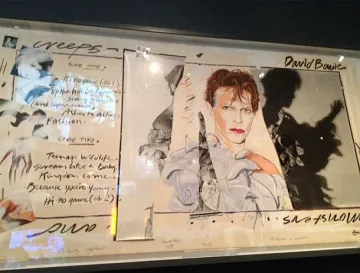 creeps-
David Bowie
SIDE ONE.
It's no game (No 1).
Up the hill backwards
Scary monsters
(and super creeps)
Ashes to ashes.
Fashion.
SIDE TWO.
Teenage Wildlife.
Scream like a Baby
Kingdom Come.
Because you're Young.
It's no game (No 2).
and
Monsters